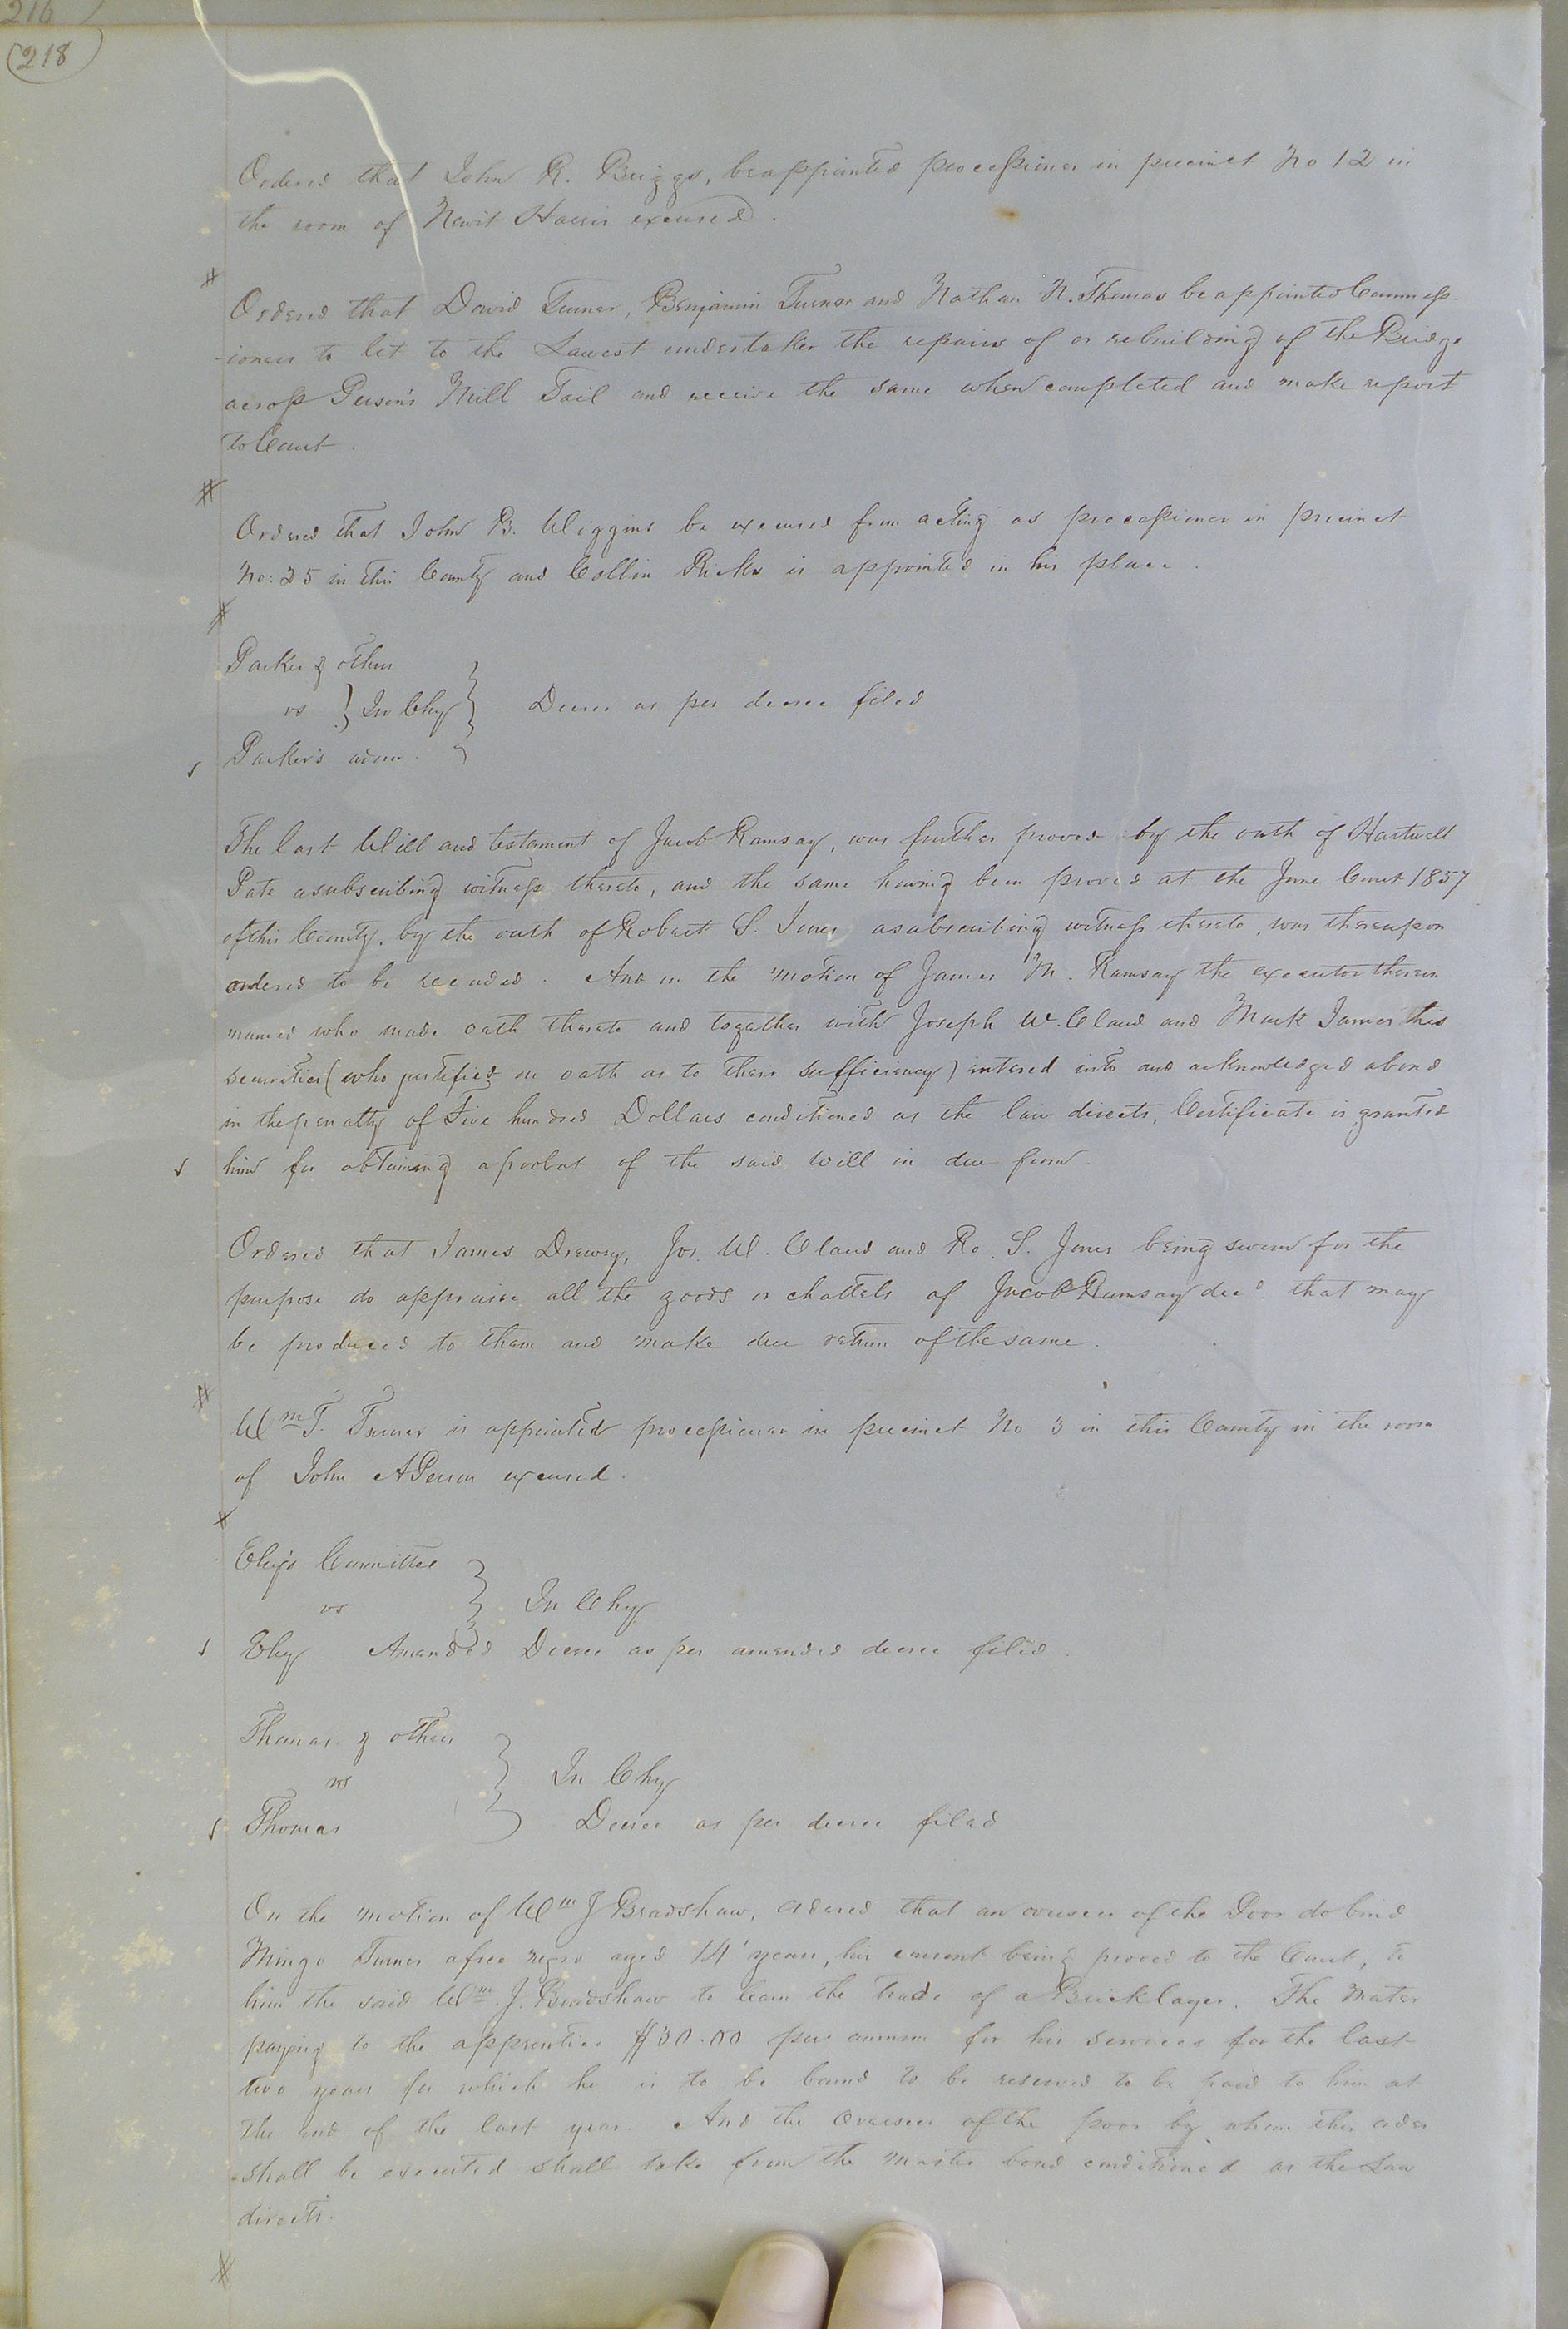 216
218
Ordered that John R. Briggs, be appointed processioner in precinct No 12 in
the room of Newit Harris excused.
Ordered that David Turner, Benjamin Turner and Nathan N. Thomas be appointed Commiss-
-ioners to let to the Lowest undertaker the repairs of or rebuilding of the Bridge
across Person's Mill Tail and receive the same when completed and make report
to Court.
Ordered that John B. Wiggins be excused from acting as processioner in precinct
No: 25 in this County and Collin Ricks is appointed in his place.
Parker & others
vs } In Chy } Decree as per decree filed
Parker's admr.
The last Will and testament of Jacob Ramsay, was further proved by the oath of Hartwell
Pate a subscribing witness thereto, and the same having been proved at the June Court 1857
of this County, by the oath of Robert S. Jones a subscribing witness thereto, was thereupon
ordered to be recorded. And on the motion of James M. Ramsay the executor therein
named who made oath thereto and together with Joseph W. Claud and Mark James his
securities (who justified on oath as to their sufficiency) entered into and acknowledged a bond
in the penalty of Five hundred Dollars conditioned as the law directs, Certificate is granted
him for obtaining a probat of the said Will in due form.
Ordered that James Drewry, Jos. W. Claud and Ro. S. Jones being sworn for the
purpose do appraise all the goods or chattels of Jacob Ramsay decd. that may
be produced to them and make due return of the same.
Wm T. Turner is appointed processioner in precinct No 3 in this County in the room
of John A Person excused.
Ely's Committee
vs } In Chy
Ely Amended Decree as per amended decree filed.
Thomas. & others
vs } In Chy
Thomas Decree as per decree filed
On the motion of Wm J Bradshaw, ordered that an overseer of the Poor do bind
Mingo Turner a free negro aged 14 years, his consent being proved to the Court, to
him the said Wm. J. Bradshaw to learn the trade of a Bricklayer. The Mater
paying to the apprentice $30.00 per annum for his services for the last
two years for which he is to be bound to be reserved to be paid to him at
the end of the last year. And the Overseer of the poor by whom this order
shall be executed shall take from the Master bond conditioned as the Law
directs.